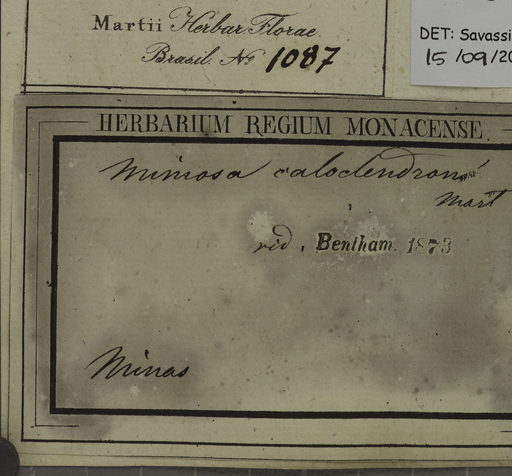 Martii Herbar. Florae
Brasil. No 1087
DET: Savassi
15/09/20
HERBARIUM REGIUM MONACENSE.
Mimosa calodendron
Mart
vid. Bentham. 1873
Minas